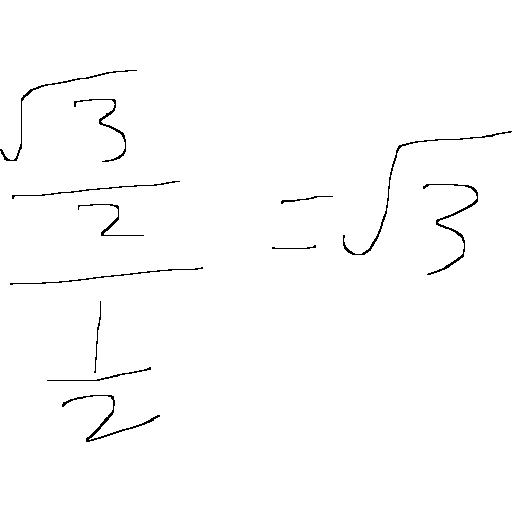 \frac{\frac{\sqrt{3}}{2}}{\frac{1}{2}} = \sqrt{3}